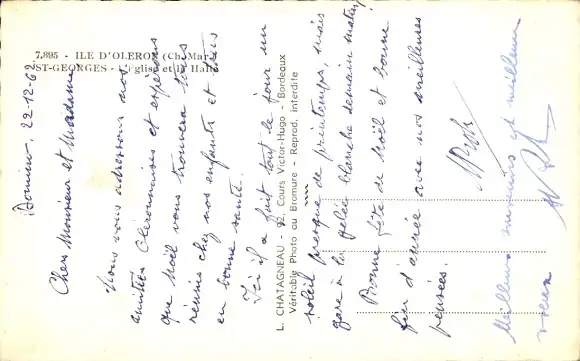 7.895 - ILE D'OLERON (Ch.Mar.)
ST-GEORGES - L'église et la Halle
22-12-62
Chers Monsieur et Madame
Nous vous adressons nos
amitiés Oléronnaises et espérons
que Noël vous trouvera tous
réunis chez nos enfants et tous
en bonne santé.
Ici il a fait tout le jour un
soleil presque de printemps, mais
gare à la gelée blanche demain matin
Bonne fête de Noël et bonne
fin d'année avec nos meilleures
pensées.
Meilleurs souvenirs et meilleurs
voeux
L. CHATAGNEAU - 92, Cours Victor-Hugo - Bordeaux
Véritable Photo au Bromure - Reprod. interdite